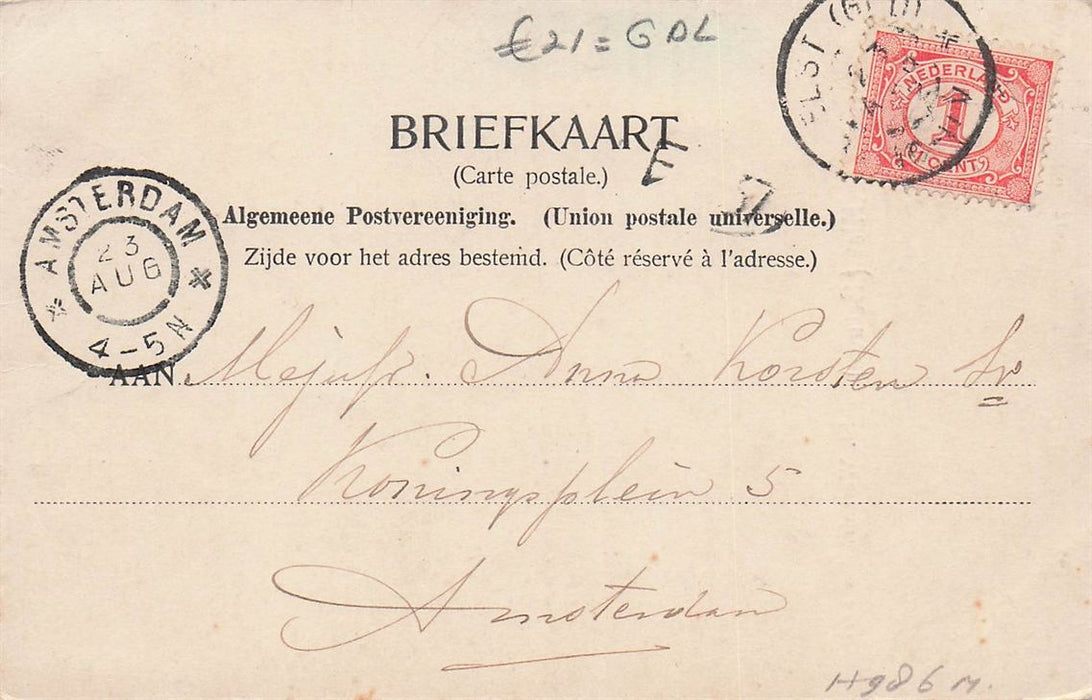 £21 = GDL
ELST (GELD)
NEDERLAND
1
CENT
BRIEFKAART
(Carte postale.)
E
Algemeene Postvereeniging. (Union postale universelle.)
Zijde voor het adres bestemd. (Côté réservé à l'adresse.)
AMSTERDAM
23
AUG
4-5N
AAN Mejufr. Anna Korsten Sr
Koningsplein 5
Amsterdam
H986 M.